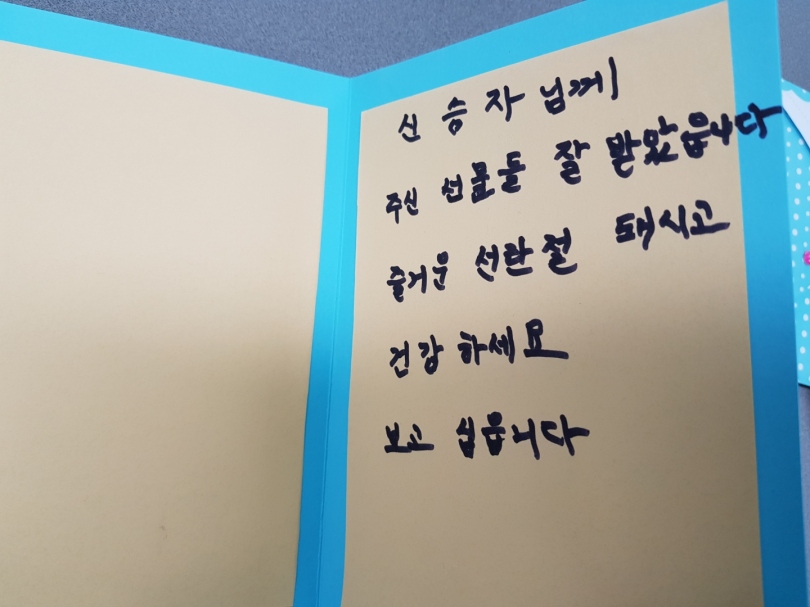 신승자님께
주신 선물들 잘 받았읍니다
즐거운 선탄절 돼시고
건강하세요
보고 십읍니다